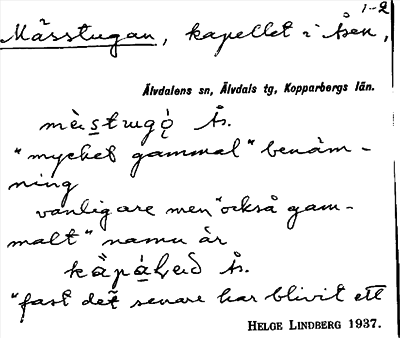 1-2
Mässtugan, kapellet i Åsen,
Älvdalens sn, Älvdals tg, Kopparbergs län.
Ås.
"mycket gammal" benäm-
ning
vanligare men "också gam-
malt" namn är
Ås.
"fast det senare har blivit ett
HELGE LINDBERG 1937.